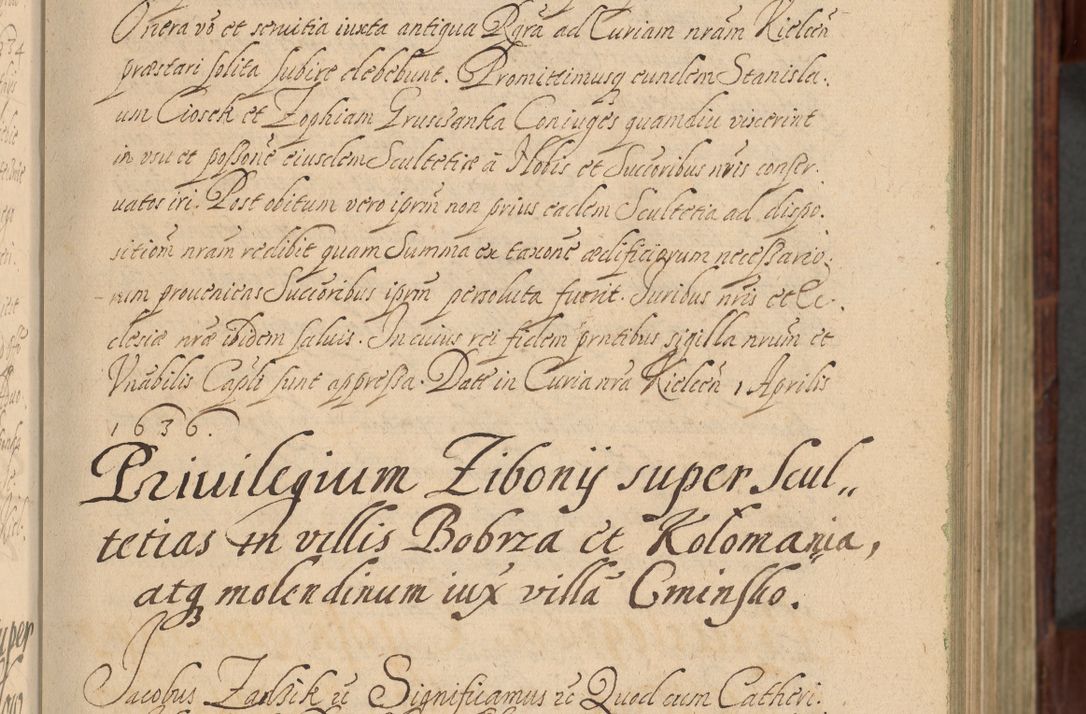 Onera vo et servitia iuxta antiqua Rgrā ad Curiam nram Kielceñ
præstari solita subire debebunt. Promittimusq eundem Stanisla.
um Ciosek et Zophiam Grusczanka Coniuges quamdiu vixerint
in vsu et possone eiusdem Scultetiæ à Nobis et Succoribus nris conser.
uatos iri. Post obitum vero iprm non prius eadem Scultetia ad dispo.
sitiom nram redibit quam Summa ex taxone ædificiorum necessario.
rum proueniens Succoribus iprm persoluta fuerit. Iuribus nris et Ec.
clesiæ nræ ibidem saluis. In cuius rei fidem prntibus sigilla nrum et
Vnābilis Capli sunt appressa. Datt in Curia nra Kielceñ 1 Aprilis
1636.
Priuilegium Zibonij super Scul„
tetias in villis Bobrza et Kolomania,
atq molendinum iux villā Cminsko.
Jacobus Zadzik &c Significamus &c Quod cum Catheri.